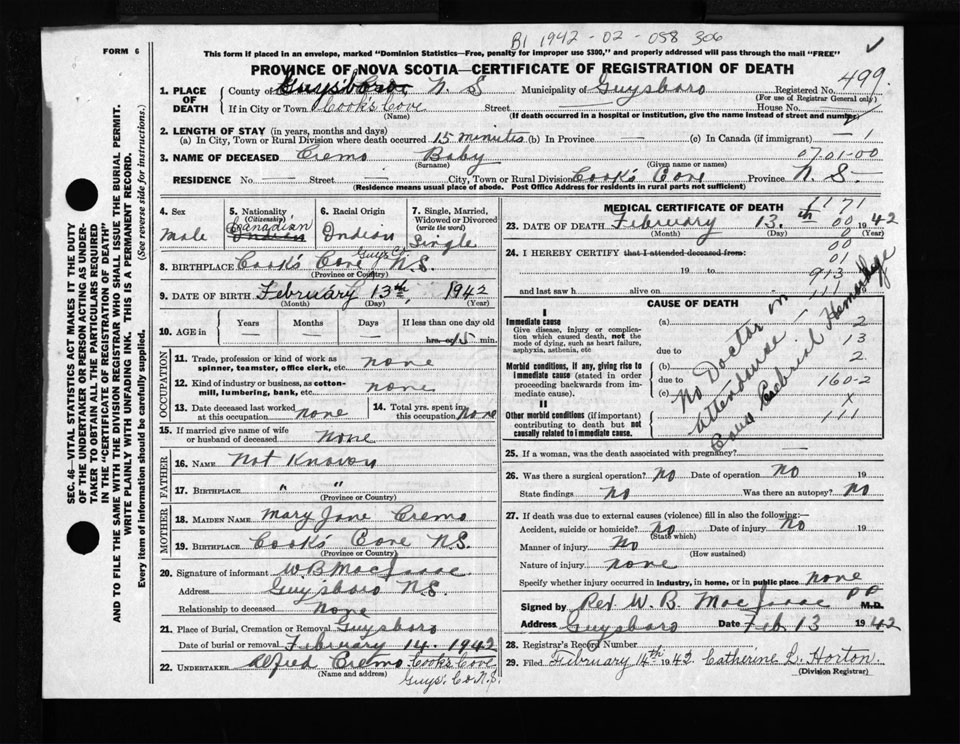 B1 1942-02-058 306
FORM 6
This form if placed in an envelope, marked "Dominion Statistics—Free, penalty for improper use $300," and properly addressed will pass through the mail "FREE"
PROVINCE OF NOVA SCOTIA—CERTIFICATE OF REGISTRATION OF DEATH
1. PLACE OF DEATH County of Guysboro, N. S Municipality of Guysboro Registered No. 499
(For use of Registrar General only)
If in City or Town Cook's Cove Street House No.
(Name) (If death occurred in a hospital or institution, give the name instead of street and number)
2. LENGTH OF STAY (in years, months and days)
(a) In City, Town or Rural Division where death occurred 15 minutes (b) In Province — (c) In Canada (if immigrant) — 1
3. NAME OF DECEASED Cremo Baby 07-01-00
(Surname) (Given name or names)
RESIDENCE No. — Street — City, Town or Rural Division Cook's Cove Province N. S.
(Residence means usual place of abode. Post Office Address for residents in rural parts not sufficient)
4. Sex Male
5. Nationality (Citizenship) Canadian Indian
6. Racial Origin Indian
7. Single, Married, Widowed or Divorced (write the word) Single
8. BIRTHPLACE Cook's Cove Guys. Co. N. S.
(Province or Country)
9. DATE OF BIRTH February 13th, 1942
(Month) (Day) (Year)
10. AGE in Years Months Days If less than one day old
hrs. or 15 min.
OCCUPATION
11. Trade, profession or kind of work as spinner, teamster, office clerk, etc. none
12. Kind of industry or business, as cotton-mill, lumbering, bank, etc. none
13. Date deceased last worked at this occupation none
14. Total yrs. spent in this occupation none
15. If married give name of wife or husband of deceased None
FATHER
16. NAME Not Known
17. BIRTHPLACE " "
(Province or Country)
MOTHER
18. MAIDEN NAME Mary Jane Cremo
19. BIRTHPLACE Cook's Cove N.S.
(Province or Country)
20. Signature of informant W. B. MacIsaac
Address Guysboro N. S.
Relationship to deceased None
21. Place of Burial, Cremation or Removal Guysboro
Date of burial or removal February 14 1942
22. UNDERTAKER Alfred Cremo Cook's Cove
(Name and address) Guys. Co N.S.
MEDICAL CERTIFICATE OF DEATH
1171
23. DATE OF DEATH February 13th 1942
(Month) (Day) (Year)
00
24. I HEREBY CERTIFY that I attended deceased from:
00
01
19 to
913
and last saw h alive on
111
CAUSE OF DEATH
I
Immediate cause (a)
Give disease, injury or complication which caused death, not the mode of dying, such as heart failure, asphyxia, asthenia, etc
due to
Morbid conditions, if any, giving rise to immediate cause (stated in order proceeding backwards from immediate cause).
(b)
due to
(c)
II
Other morbid conditions (if important) contributing to death but not causally related to immediate cause.
No Doctor in
attendance
Caus Cerebral Hemorrhage
2
13
2
160-2
x
111
25. If a woman, was the death associated with pregnancy? —
26. Was there a surgical operation? No Date of operation No 19
State findings No Was there an autopsy? No
27. If death was due to external causes (violence) fill in also the following:—
Accident, suicide or homicide? No Date of injury No 19
(State which)
Manner of injury No
(How sustained)
Nature of injury none
Specify whether injury occurred in industry, in home, or in public place none
Signed by Rev W. B. MacIsaac P P M.D.
Address Guysboro Date Feb. 13 1942
28. Registrar's Record Number
29. Filed February 14th 1942 Catherine L. Horton.
(Division Registrar)
SEC. 46—VITAL STATISTICS ACT MAKES IT THE DUTY
OF THE UNDERTAKER OR PERSON ACTING AS UNDER-
TAKER TO OBTAIN ALL THE PARTICULARS REQUIRED
IN THE "CERTIFICATE OF REGISTRATION OF DEATH"
AND TO FILE THE SAME WITH THE DIVISION REGISTRAR WHO SHALL ISSUE THE BURIAL PERMIT.
WRITE PLAINLY WITH UNFADING INK. THIS IS A PERMANENT RECORD.
Every item of information should be carefully supplied. (See reverse side for instructions.)